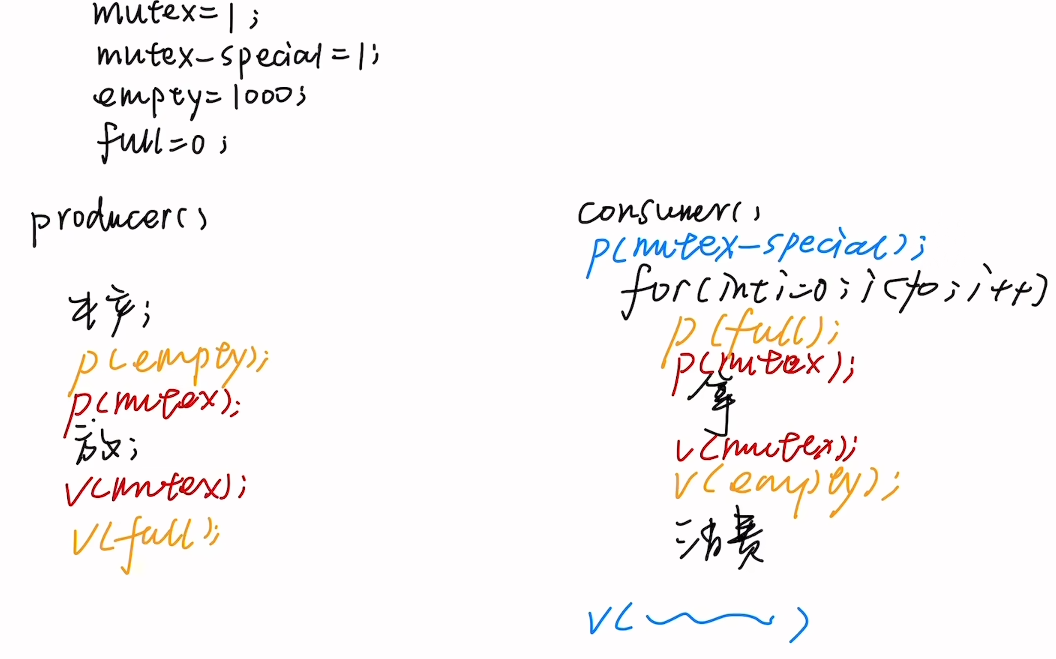 mutex=1;
mutex-special=1;
empty=1000;
full=0;
producer()
生产;
p(empty);
p(mutex);
放;
v(mutex);
v(full);
consumer();
p(mutex-special);
for(int i=0;i<10;i++)
p(full);
p(mutex);
拿
v(mutex);
v(empty);
消费
v( )